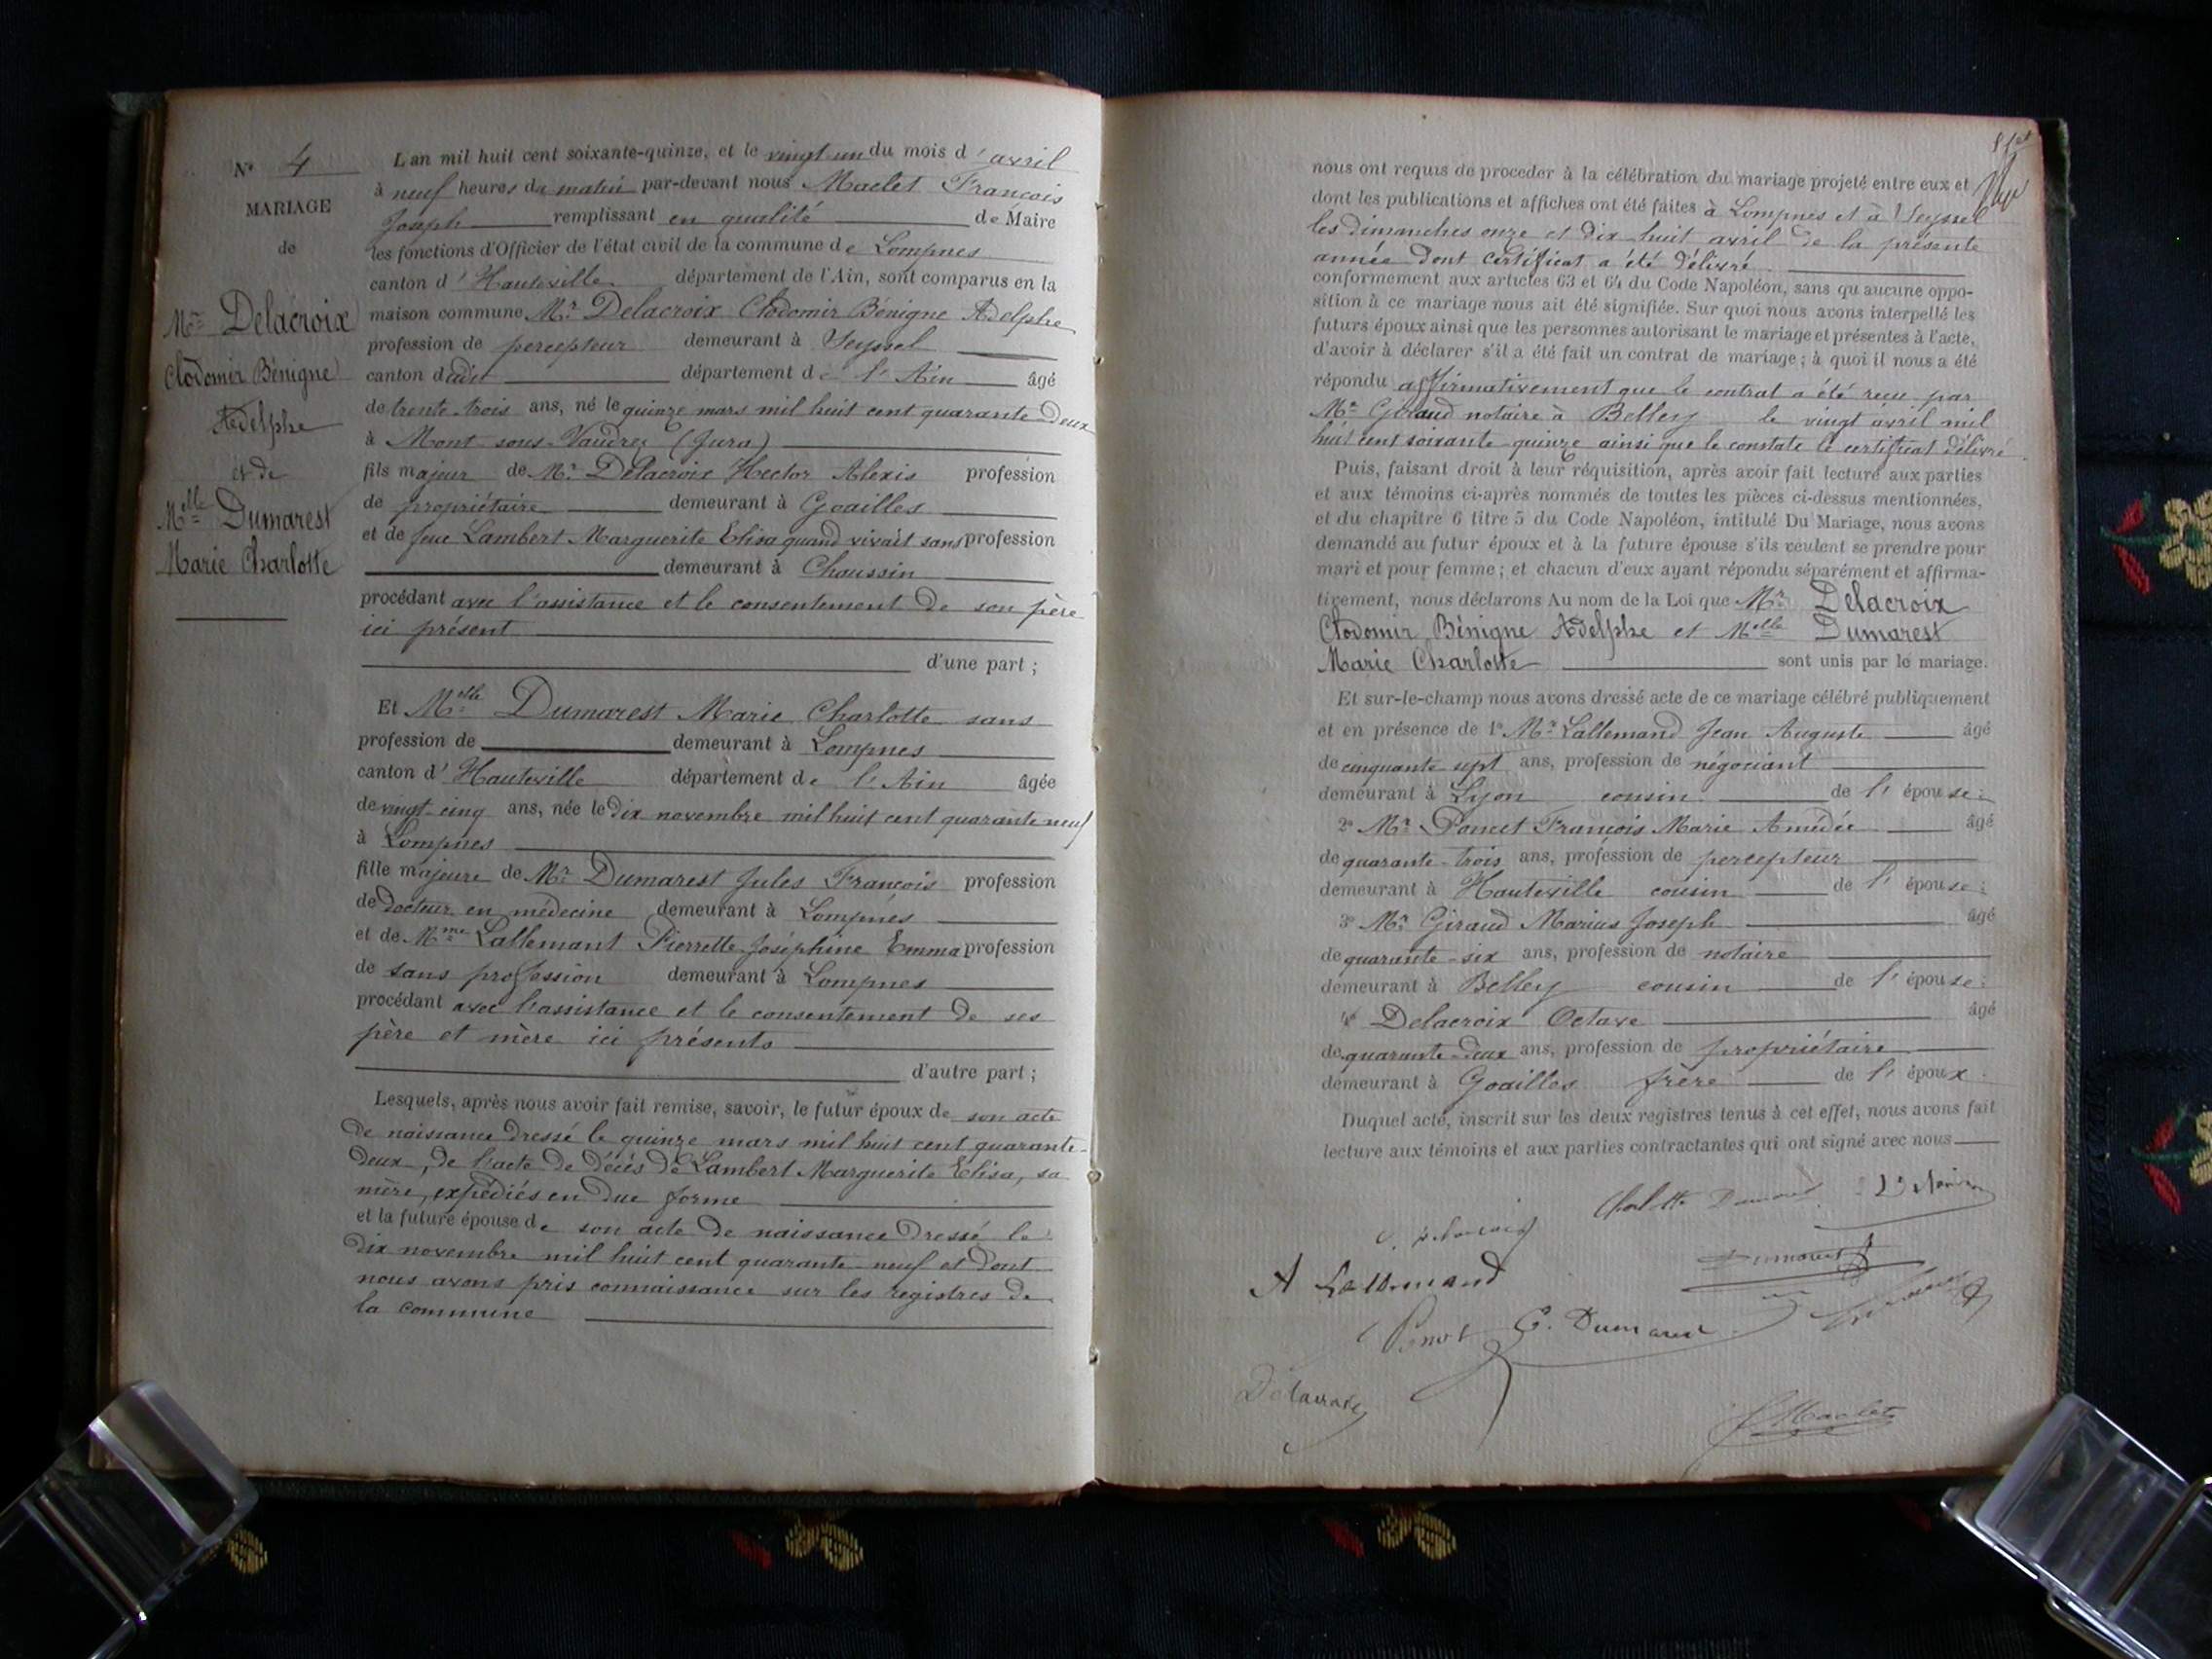 N° 4
MARIAGE
de
Mr Delacroix
Clodomir Bénigne
Adelphe
et de
Melle Dumarest
Marie Charlotte
L'an mil huit cent soixante-quinze, et le vingt un du mois d'avril
à neuf heures du matin par-devant nous Maclet François
Joseph remplissant en qualité de Maire
les fonctions d'Officier de l'état civil de la commune de Lompnes
canton d'Hauteville département de l'Ain, sont comparus en la
maison commune Mr Delacroix Clodomir Bénigne Adelphe
profession de percepteur demeurant à Seyssel
canton dudit département de l'Ain âgé
de trente-trois ans, né le quinze mars mil huit cent quarante deux
à Mont-sous-Vaudrez (Jura)
fils majeur de Mr Delacroix Hector Alexis profession
de propriétaire demeurant à Goailles
et de feue Lambert Marguerite Elisa quand vivait sans profession
demeurant à Chaussin
procédant avec l'assistance et le consentement de son père
ici présent
d'une part ;
Et Melle Dumarest Marie Charlotte sans
profession de demeurant à Lompnes
canton d'Hauteville département de l'Ain âgée
de vingt-cinq ans, née le dix novembre mil huit cent quarante neuf
à Lompnes
fille majeure de Mr Dumarest Jules François profession
de docteur en médecine demeurant à Lompnes
et de Mme Lallemant Pierrette Joséphine Emma profession
de sans profession demeurant à Lompnes
procédant avec l'assistance et le consentement de ses
père et mère ici présents
d'autre part ;
Lesquels, après nous avoir fait remise, savoir, le futur époux de son acte
de naissance dressé le quinze mars mil huit cent quarante-
deux, de l'acte de décès de Lambert Marguerite Elisa, sa
mère, expédiés en due forme
et la future épouse de son acte de naissance dressé le
dix novembre mil huit cent quarante-neuf et dont
nous avons pris connaissance sur les registres de
la commune
nous ont requis de proceder à la célébration du mariage projeté entre eux et
dont les publications et affiches ont été faites à Lompnes et à Seyssel
les dimanches onze et dix-huit avril de la présente
année dont certificat a été délivré
conformement aux articles 63 et 64 du Code Napoléon, sans qu'aucune oppo-
sition à ce mariage nous ait été signifiée. Sur quoi nous avons interpellé les
futurs époux ainsi que les personnes autorisant le mariage et présentes à l'acte,
d'avoir à déclarer s'il a été fait un contrat de mariage ; à quoi il nous a été
répondu affirmativement que le contrat a été reçu par
Me Giraud notaire à Belley le vingt avril mil
huit cent soixante-quinze ainsi que le constate le certificat délivré
Puis, faisant droit à leur réquisition, après avoir fait lecture aux parties
et aux témoins ci-après nommés de toutes les pièces ci-dessus mentionnées,
et du chapitre 6 titre 5 du Code Napoléon, intitulé Du Mariage, nous avons
demandé au futur époux et à la future épouse s'ils veulent se prendre pour
mari et pour femme ; et chacun d'eux ayant répondu séparément et affirma-
tivement, nous déclarons Au nom de la Loi que Mr Delacroix
Clodomir Bénigne Adelphe et Melle Dumarest
Marie Charlotte sont unis par le mariage.
Et sur-le-champ nous avons dressé acte de ce mariage célébré publiquement
et en présence de 1° Mr Lallemand Jean Auguste âgé
de cinquante sept ans, profession de négociant
demeurant à Lyon cousin de l'épouse :
2° Mr Poncet François Marie Amédée âgé
de quarante-trois ans, profession de percepteur
demeurant à Hauteville cousin de l'épouse :
3° Mr Giraud Marius Joseph âgé
de quarante-six ans, profession de notaire
demeurant à Belley cousin de l'épouse :
4° Delacroix Octave âgé
de quarante-deux ans, profession de propriétaire
demeurant à Goailles frère de l'époux.
Duquel acte, inscrit sur les deux registres tenus à cet effet, nous avons fait
lecture aux témoins et aux parties contractantes qui ont signé avec nous
Charlotte Dumarest
Dumarest
A Lallemand
Dumarest
Delacroix
Maclet